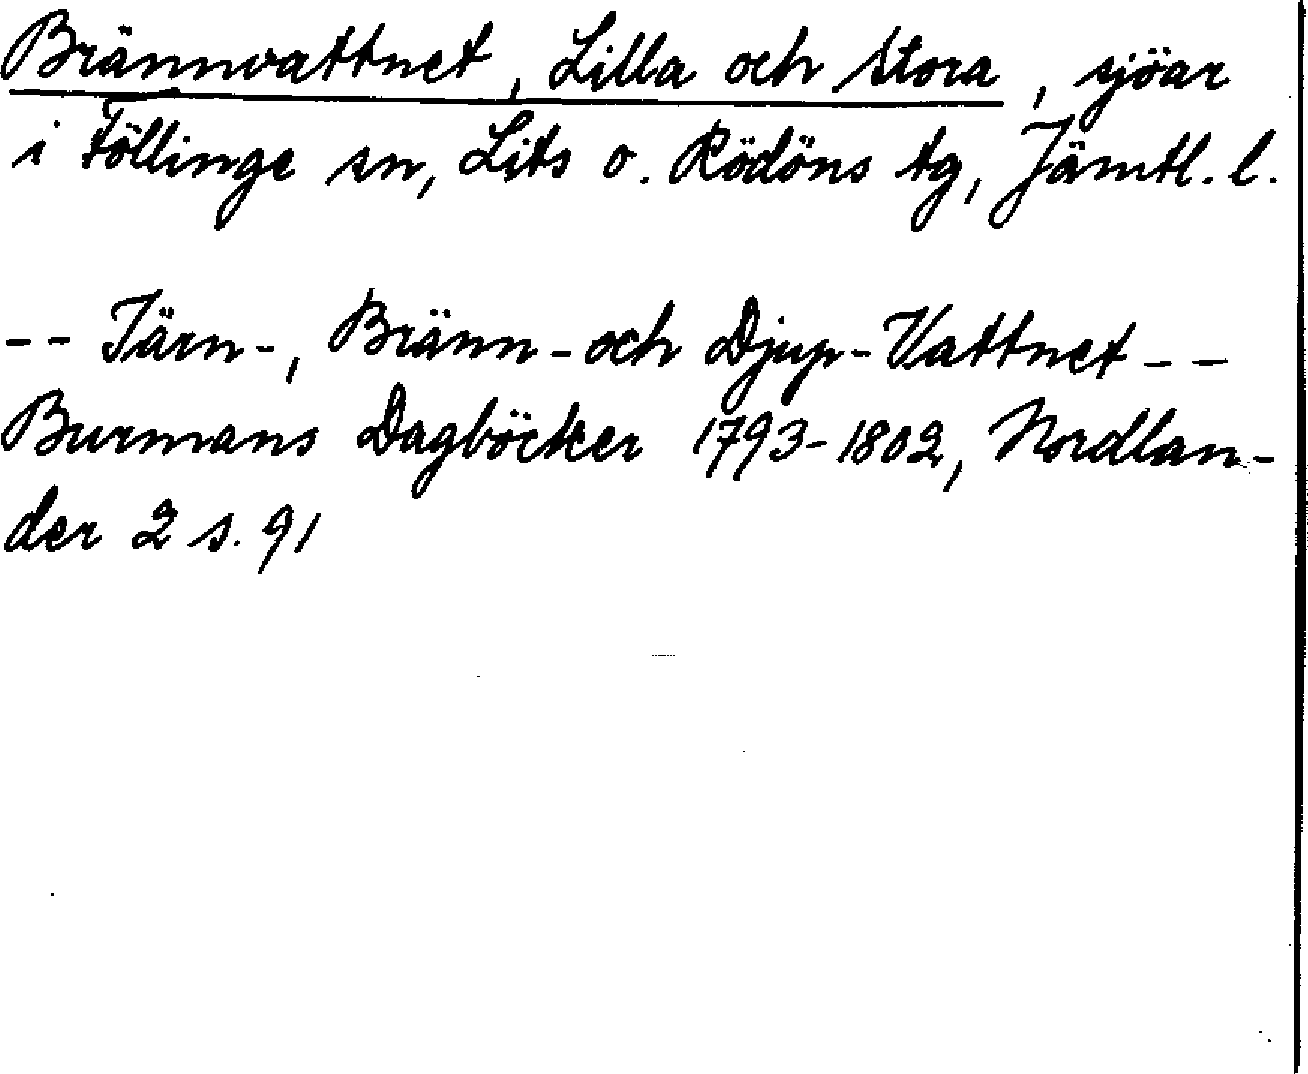 Brännvattnet, Lilla och Stora, sjöar
i Föllinge sn, Lits o. Rödöns tg, Jämtl. l.
-- Tärn-, Bränn- och Djup-Vattnet --
Burmans Dagböcker 1793-1802, Nordlan-
der 2 s. 91